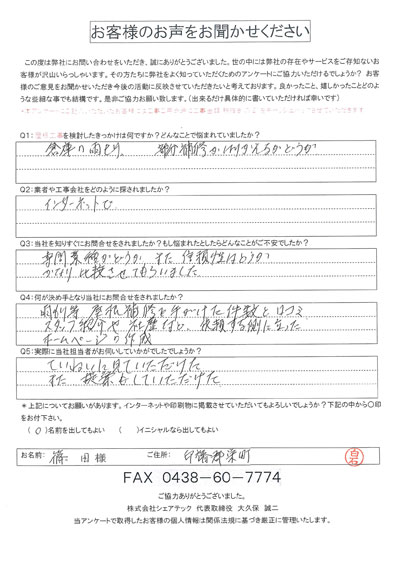 お客様のお声をお聞かせください
この度は弊社にお問い合わせをいただき、誠にありがとうございました。世の中には弊社の存在やサービスをご存知ないお
客様が沢山いらっしゃいます。その方たちに弊社をよく知っていただくためのアンケートにご協力いただけるでしょうか? お客
様のご意見をお聞かせいただき今後の活動に反映させていただきたいと考えております。良かったこと、嬉しかったことどのよ
うな些細な事でも結構です。是非ご協力お願い致します。(出来るだけ具体的に書いていただければ幸いです)
Q1:屋根工事を検討したきっかけは何ですか?どんなことで悩まれていましたか?
倉庫の雨もり。 部分補修が行なえるかどうか
Q2:業者や工事会社をどのように探されましたか?
インターネットで
Q3:当社を知りすぐにお問合せをされましたか?もし悩まれたとしたらどんなことがご不安でしたか?
専門業種かどうか、また 信頼性はどうか
かなり比較させてもらいました
Q4:何が決め手となり当社にお問合せをしましたか?
屋根補修を手がけた件数と口コミ
スタッフ紹介や社歴など、依頼する側に立った
ホームページの作成
Q5:実際に当社担当者がお伺いしていかがでしたでしょうか?
ていねいに見ていただけた
また 提案もしていただけた
*上記についてお願いがあります。インターネットや印刷物に掲載させていただいてもよろしいでしょうか?下記の中から○印
をお付下さい。
(○)名前を出してもよい ( )イニシャルなら出してもよい
お名前: 篠田 様 ご住所: 印旛郡栄町
白石
FAX 0438-60-7774
ご協力ありがとうございました。
株式会社シェアテック 代表取締役 大久保 誠二
当アンケートで取得したお客様の個人情報は関係法規に基づき厳正に管理いたします。